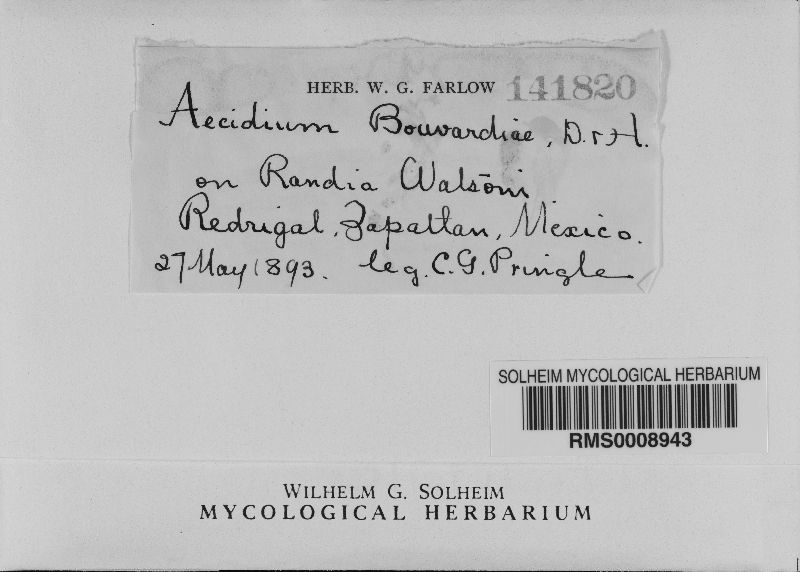 HERB. W. G. FARLOW 141820
Aecidium Bouvardiae, D. & H.
on Randia Watsoni
Redrigal, Zapaltan, Mexico.
27 May 1893. leg. C. G. Pringle
SOLHEIM MYCOLOGICAL HERBARIUM
RMS0008943
WILHELM G. SOLHEIM
MYCOLOGICAL HERBARIUM